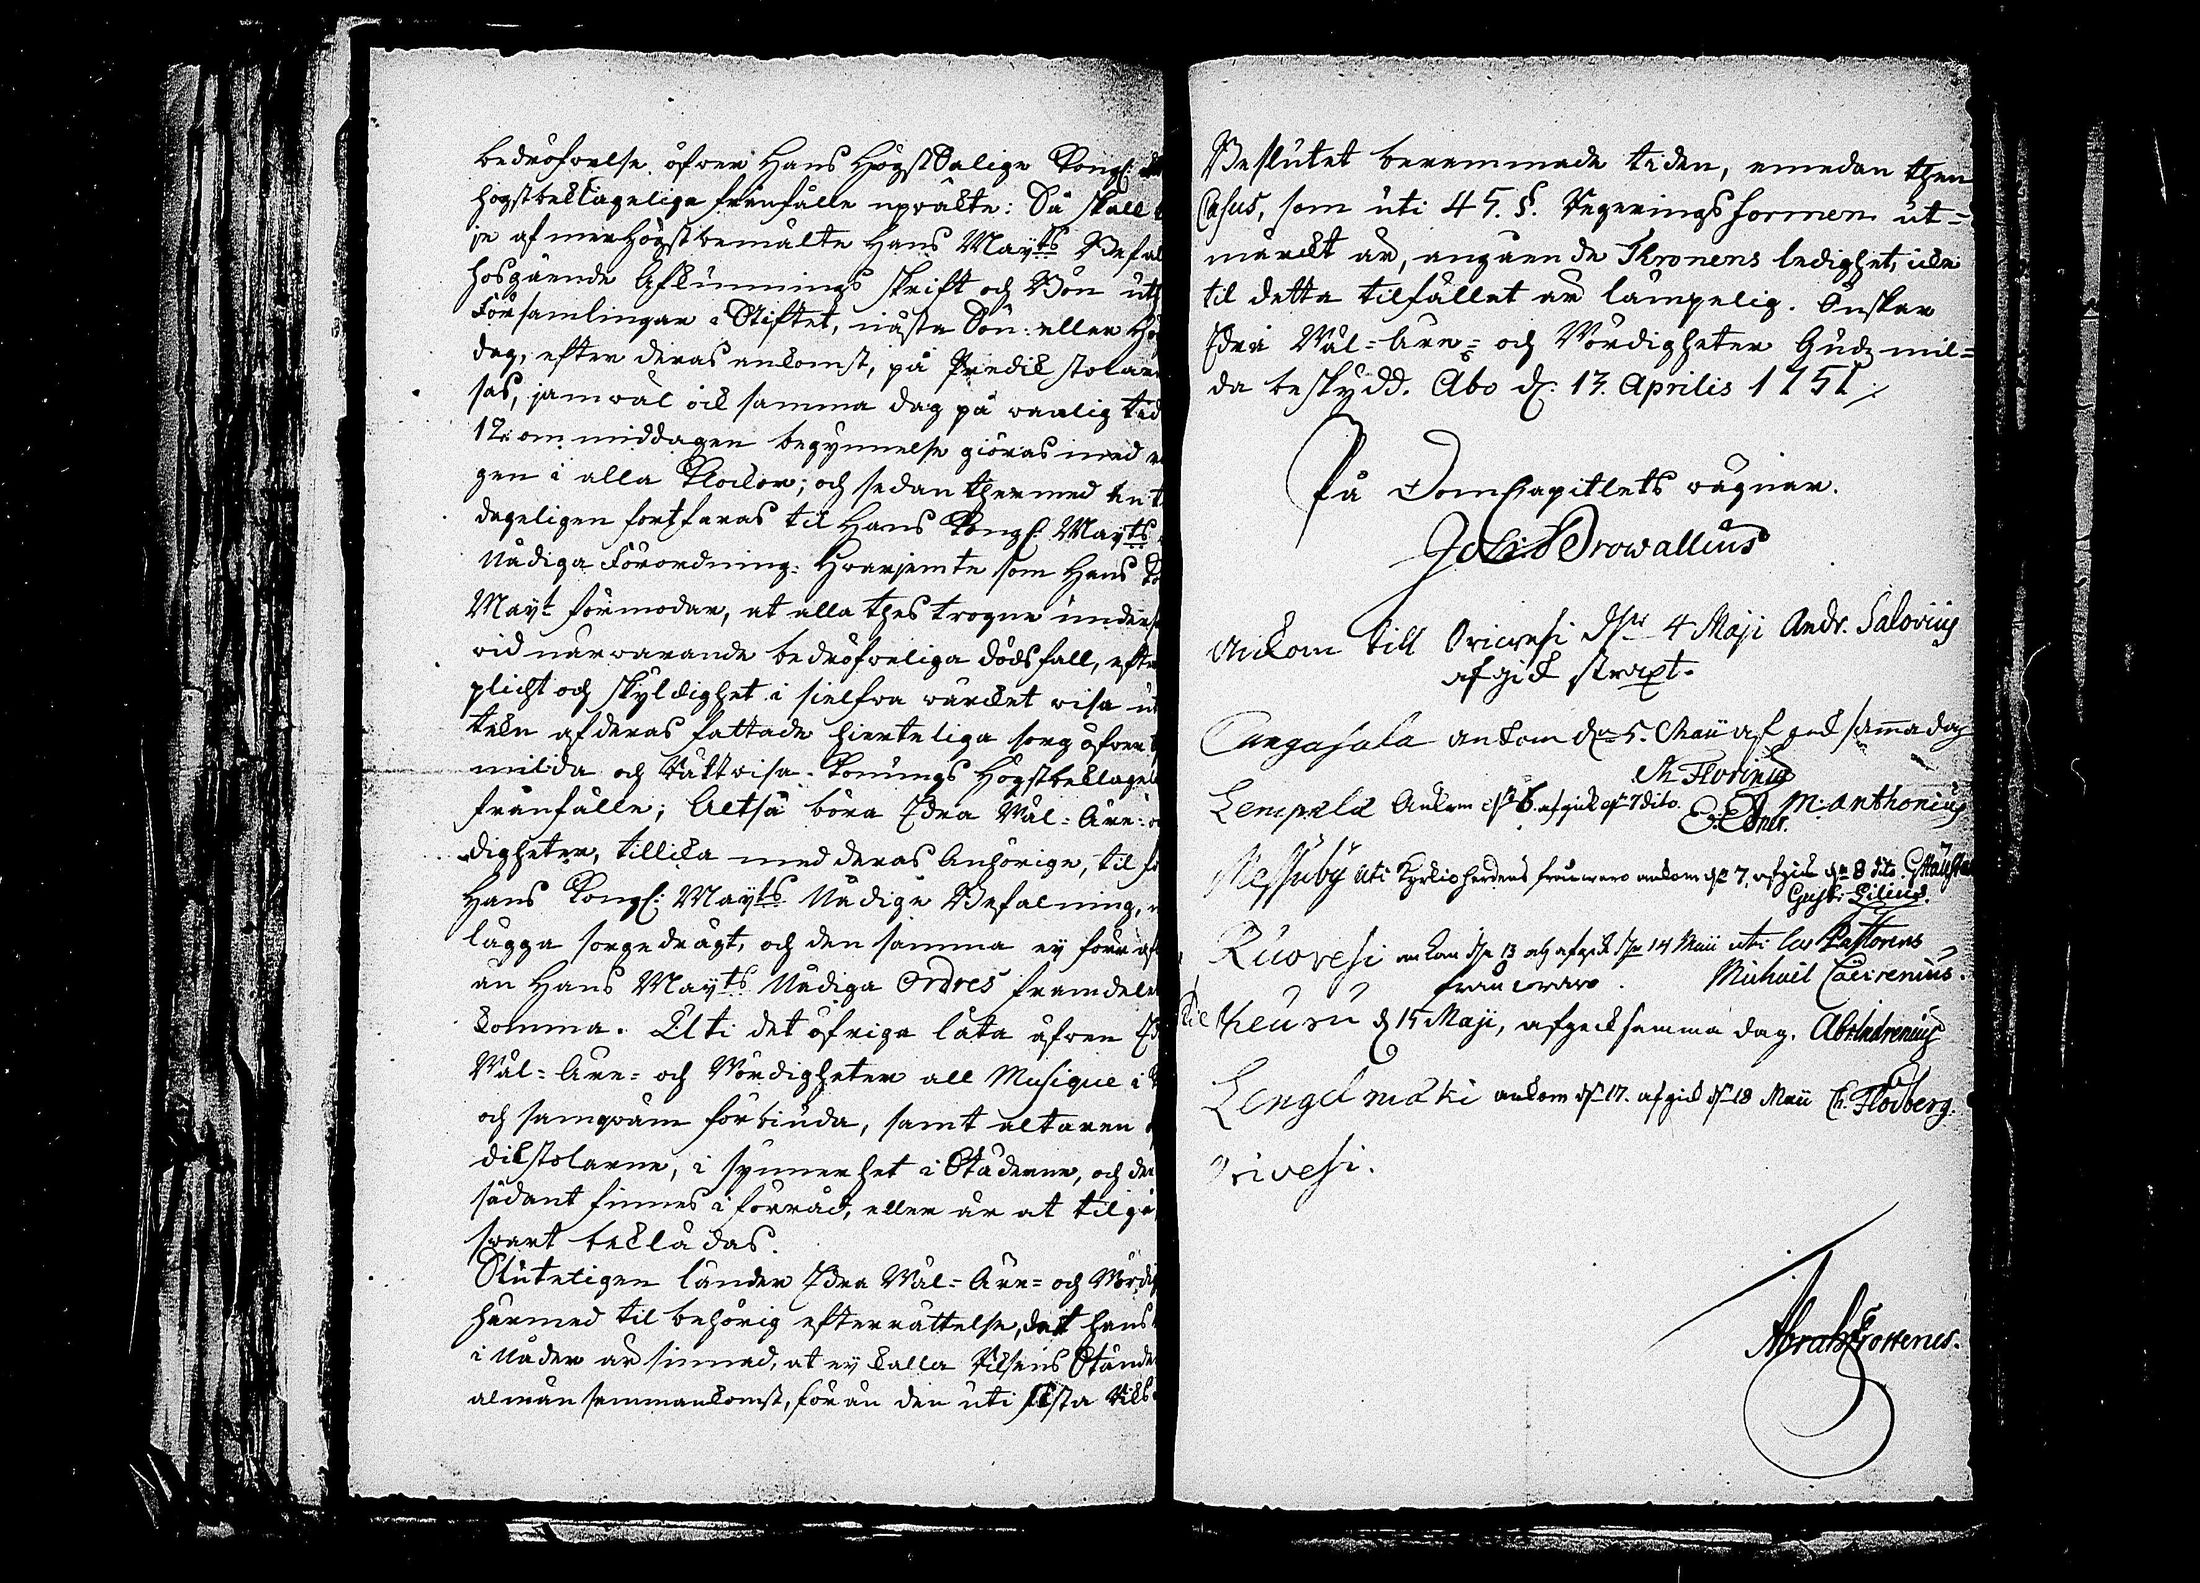 bedröfvelse öfver Hans Högstsalige Kongl.
högstbeklagelige frånfälle upväkte: Så skall
je af merhögstbemälte Hans Mayts Befal
hosgående Afkunnings skrift och Bön uth
Församlingar i Stiftet, nästa Sön- eller Hög
dag, efter deras ankomst, på Predikstolarn
sas, jämväl ock samma dag på vanlig tid
12. om middagen begynnelse giöras med
gen i alla Klockor; och sedan thermed
dageligen fortfaras til Hans Kongl. Mayts
Nådiga Förordning. Hvarjemte som Hans
Mayt förmodar, at alla thes trogne underså
vid närvarande bedröfveliga dödsfall, efter
plicht och skyldighet i sielfva värcket visa
tekn af deras fattade hierteliga sorg öfver
milda och Rättvisa Konungs Högstbeklagel
frånfälle; Altså böra Edra Väl- Äre-
digheter, tillika med deras Anhörige, til
Hans Kongl. Mayts Nådige Befalning,
lägga sorgedrägt, och den samma ey förr af
än Hans Mayts Nådiga Ordres framdeles
komma. Uti det öfriga låta äfven
Väl- Äre- och Vördigheter all Musique i
och samqväm förbiuda, samt altaren
dikstolarne, i synnerhet i Städerne, och der
sådant finnes i förråd, eller är at tilgå,
svart beklädas.
Sluteligen länder Edra Väl- Äre- och Vördig
härmed til behörig efterrättelse, det Hans
i Nåder är sinnad, at ey kalla Riksens Stände
almän sammankomst, för än den uti sista Riks-
Beslutet beremmade tiden, emedan then
Casus, som uti 45. §. Regeringsformen ut-
märckt är, angående Thronens ledighet, icke
til detta tilfället är lämpelig. Önskar
Edra Väl- Äre- och Vördigheter Gudz mil-
da beskydd. Åbo d. 13. Aprilis 1751.
På DomCapitlets vägnar.
Joh: Browallius
Ankom till Orivesi 4 Maji Andr. Salovius
afgick straxt.
Cangasala ankom d. 5. Maii afgick samma dag
M Florinus
Lempälä Ankom d. 6. afgick d. 7 dito. M. Anthonius
Messuby uti Kyrkioherdens frånvaro ankom d. 7, afgick d. 8 dito.
Gust: Lilius.
Ruovesi ankom d. 13 och afgick d. 14 Maii uti Pastorens
frånvaro. Michaël Cairenius.
Keuru d. 15 Maji, afgeck samma dag. Abr: Indrenius
Lengelmäki ankom d. 17. afgick d. 18 Maii C. Flodberg.
Orivesi.
Abrah: Frosterus.